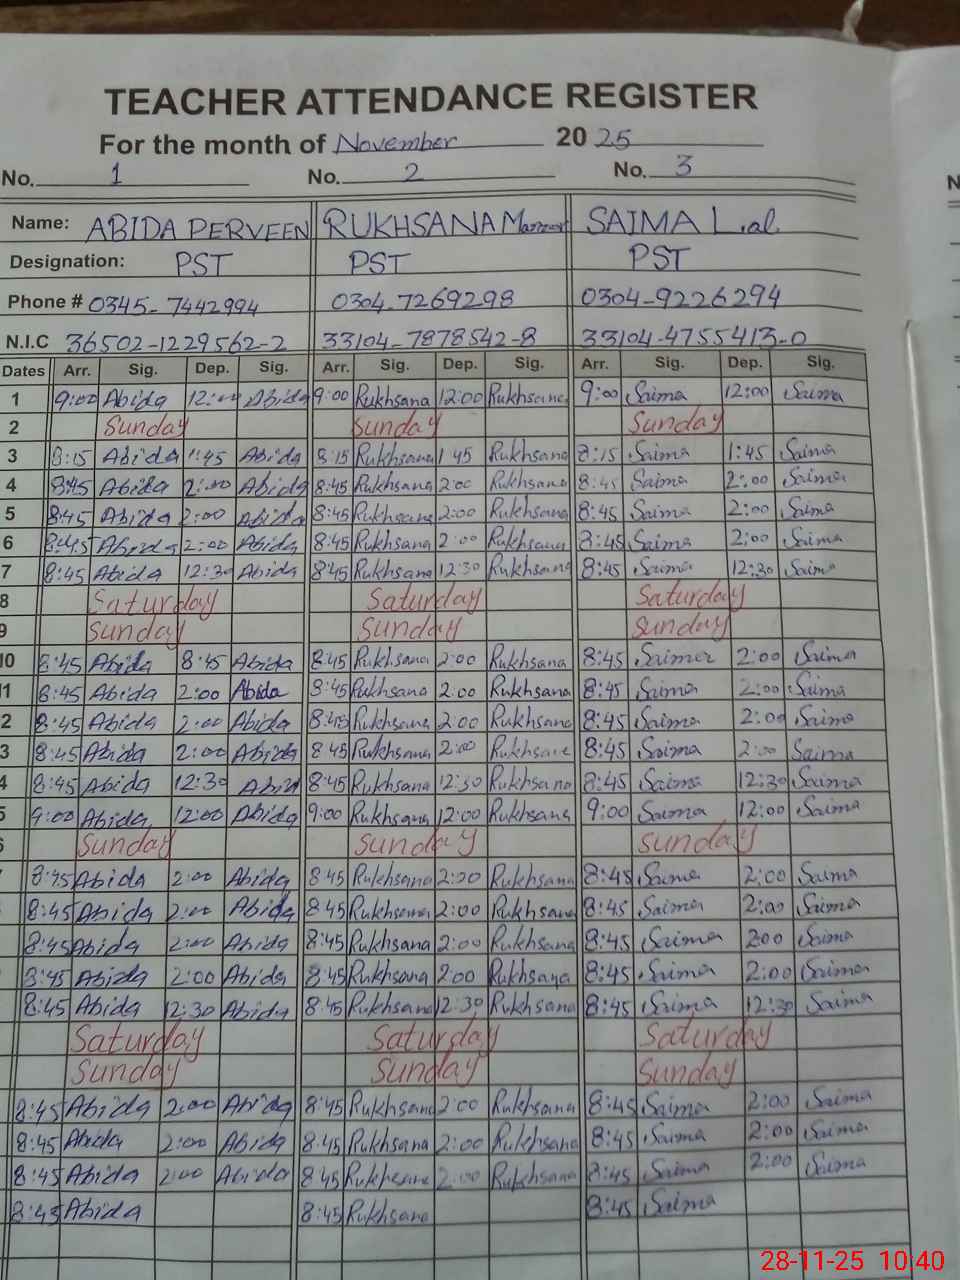 TEACHER ATTENDANCE REGISTER
For the month of November 2025
No. 1 No. 2 No. 3
Name: ABIDA PERVEEN RUKHSANA SAIMA Lal
Designation: PST PST PST
Phone # 0345-7442994 0304-7269298 0304-9226294
N.I.C 36502-1229562-2 33104-7878542-8 33104-4755413-0
Dates Arr. Sig. Dep. Sig. Arr. Sig. Dep. Sig. Arr. Sig. Dep. Sig.
1 9:00 Abida 12:00 Abida 9:00 Rukhsana 12:00 Rukhsana 9:00 Saima 12:00 Saima
2 Sunday Sunday Sunday
3 8:15 Abida 1:45 Abida 8:15 Rukhsana 1 45 Rukhsana 8:15 Saima 1:45 Saima
4 8:45 Abida 2:00 Abida 8:45 Rukhsana 2:00 Rukhsana 8:45 Saima 2:00 Saima
5 8:45 Abida 2:00 Abida 8:45 Rukhsana 2:00 Rukhsana 8:45 Saima 2:00 Saima
6 8:45 Abida 2:00 Abida 8:45 Rukhsana 2:00 Rukhsana 8:45 Saima 2:00 Saima
7 8:45 Abida 12:30 Abida 8:45 Rukhsana 12:30 Rukhsana 8:45 Saima 12:30 Saima
8 Saturday Saturday Saturday
9 Sunday Sunday Sunday
10 8:45 Abida 8:45 Abida 8:45 Rukhsana 2:00 Rukhsana 8:45 Saima 2:00 Saima
11 8:45 Abida 2:00 Abida 8:45 Rukhsana 2:00 Rukhsana 8:45 Saima 2:00 Saima
2 8:45 Abida 2:00 Abida 8:45 Rukhsana 2:00 Rukhsana 8:45 Saima 2:00 Saima
3 8:45 Abida 2:00 Abida 8:45 Rukhsana 2:00 Rukhsana 8:45 Saima 2:00 Saima
4 8:45 Abida 12:30 Abida 8:45 Rukhsana 12:30 Rukhsana 8:45 Saima 12:30 Saima
5 9:00 Abida 12:00 Abida 9:00 Rukhsana 12:00 Rukhsana 9:00 Saima 12:00 Saima
6 Sunday Sunday Sunday
8:45 Abida 2:00 Abida 8:45 Rukhsana 2:00 Rukhsana 8:45 Saima 2:00 Saima
8:45 Abida 2:00 Abida 8:45 Rukhsana 2:00 Rukhsana 8:45 Saima 2:00 Saima
8:45 Abida 2:00 Abida 8:45 Rukhsana 2:00 Rukhsana 8:45 Saima 200 Saima
8:45 Abida 2:00 Abida 8:45 Rukhsana 2:00 Rukhsana 8:45 Saima 2:00 Saima
8:45 Abida 12:30 Abida 8:45 Rukhsana 12:30 Rukhsana 8:45 Saima 12:30 Saima
Saturday Saturday Saturday
Sunday Sunday Sunday
8:45 Abida 2:00 Abida 8:45 Rukhsana 2:00 Rukhsana 8:45 Saima 2:00 Saima
8:45 Abida 2:00 Abida 8:45 Rukhsana 2:00 Rukhsana 8:45 Saima 2:00 Saima
8:45 Abida 2:00 Abida 8:45 Rukhsana 2:00 Rukhsana 8:45 Saima 2:00 Saima
8:45 Abida 8:45 Rukhsana 8:45 Saima
28-11-25 10:40